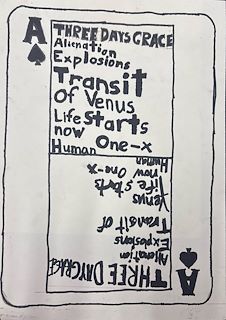 A
THREE DAYS GRACE
Alienation
Explosions
Transit
of Venus
Life Starts
now One-x
Human
A
THREE DAYGRACE
Alienation
Explosions
Transit of
Venus
life starts
now One-x
Human